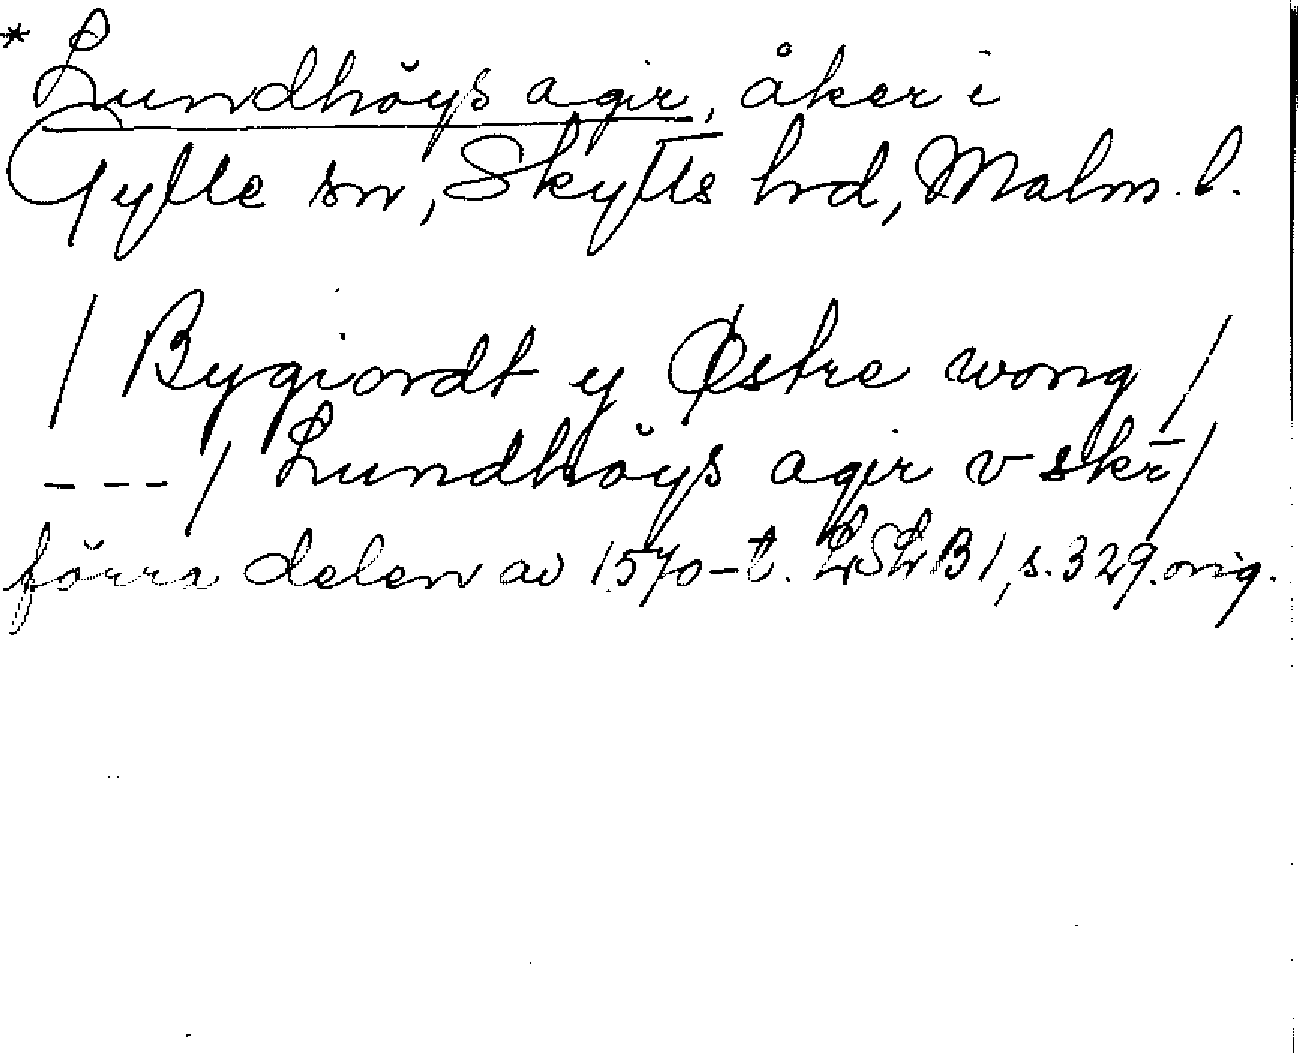 * Lundhöys agir, åker i
Gylle sn, Skytts hd, Malm. l.
/ Bygiordt y Østre wong /
---/ Lundhöys agir v skr̄/
förra delen av 1570-t. LSLB1, s. 329. orig.